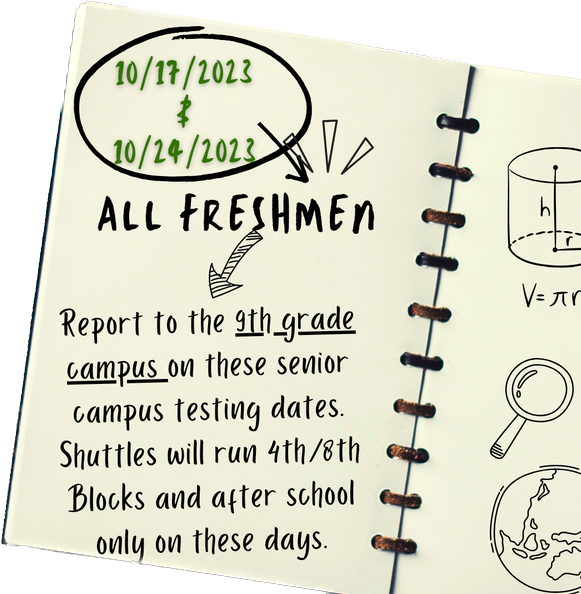 10/17/2023
&
10/24/2023
ALL FRESHMEn
Report to the 9th grade
campus on these senior
campus testing dates.
Shuttles will run 4th/8th
Blocks and after school
only on these days.
h
r
V=πr